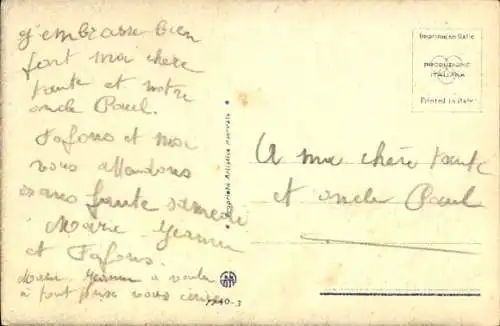 j'embrasse bien
fort ma chère
tante et notre
oncle Paul.
Fofons et moi
vous attendons
sans faute samedi
Marie Jeanne
et Fofons.
Marie Jeanne a voulu
à tout prix vous écrire
Imprimé en Italie
PRODUZIONE
ITALIANA
Printed in Italy
Proprietà Artistica Riservata
A ma chère tante
et oncle Paul
7740-3